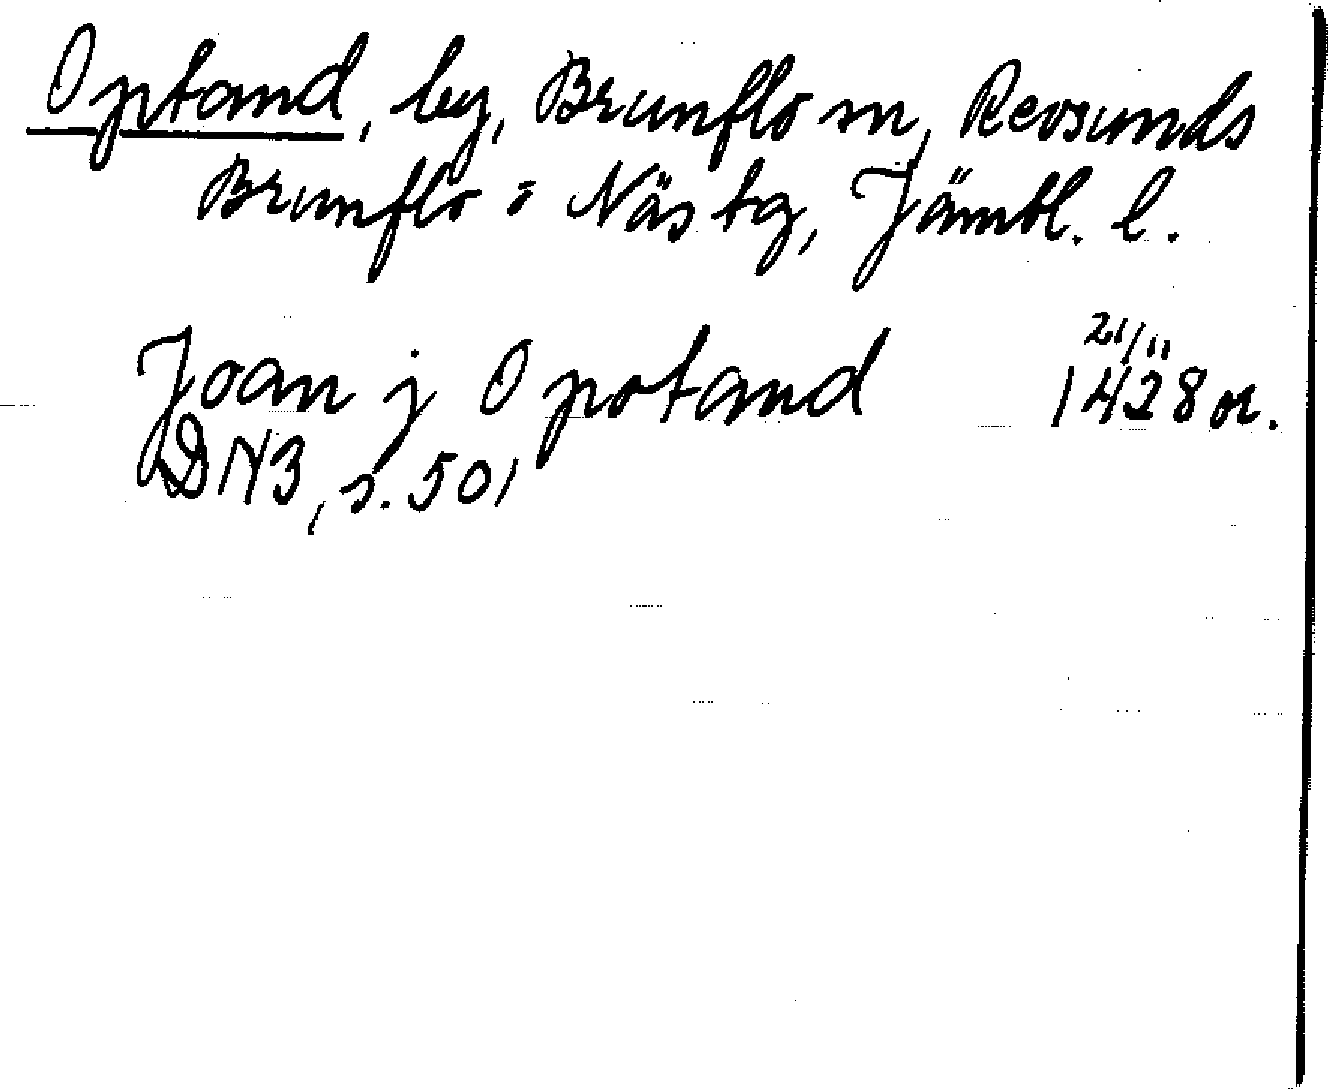 Optand, by, Brunflo sn, Revsunds
Brunflo o Näs tg, Jämtl. l.
Joan j Opotand 21/11 1428 or.
DN 3, s. 501